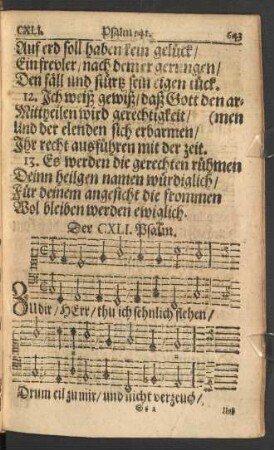 CXLI. Psalm 141. 643
Auf erd soll haben kein gelück/
Ein frevler/ nach deiner gerungen/
Den fäll und stürtz sein eigen tück.
12. Ich weiß gewiß/ daß Gott den ar-
Mittheilen wird gerechtigkeit/ (men
Und der elenden sich erbarmen/
Ihr recht ausführen mit der zeit.
13. Es werden die gerechten rühmen
Deinn heilgen namen würdiglich/
Für deinem angesicht die frommen
Wol bleiben werden ewiglich.
Der CXLI. Psalm.
Zu dir/ HErr/ thu ich sehnlich flehen/
Drum eil zu mir/ und nicht verzeuch/